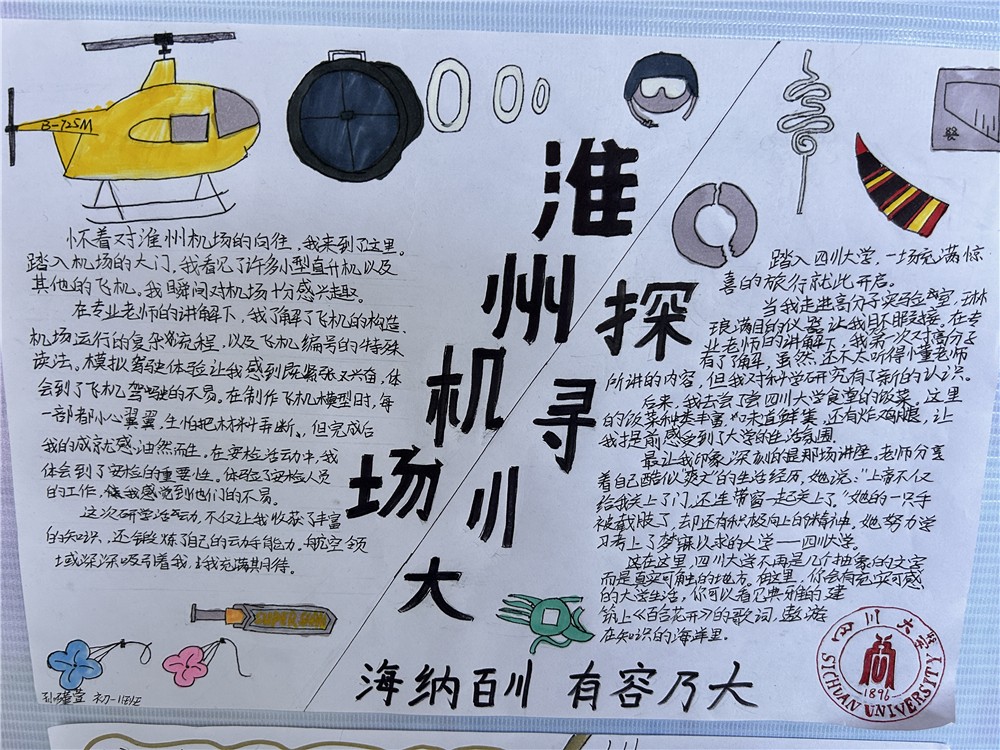 B-725M
淮州机场
探寻川大
怀着对淮州机场的向往，我来到了这里。
踏入机场的大门，我看见了许多小型直升机以及
其他的飞机。我瞬间对机场十分感兴趣。
在专业老师的讲解下，我了解了飞机的构造、
机场运行的复杂流程，以及飞机编号的特殊
读法。模拟驾驶体验让我感到既紧张又兴奋，体
会到了飞机驾驶的不易。在制作飞机模型时，每
一部都小心翼翼，生怕把材料弄断、但完成后
我的成就感油然而生。在安检活动中，我
体会到了安检的重要性。体验了安检人员
的工作，使我感觉到他们的不易。
这次研学活动，不仅让我收获了丰富
的知识，还锻炼了自己的动手能力。航空领
域深深吸引着我，我充满其月待。
SUPER SCAN
孙瑾萱 初一11班
踏入四川大学，一场充满惊
喜的旅行就此开启。
当我走进高分子实验室，琳
琅满目的仪器让我目不暇接。在专
业老师的讲解下，我第一次对高分子
有了了解，虽然还不太听得懂老师
所讲的内容，但我对科学研究有了新的认识。
后来，我去尝了尝四川大学食堂的饭菜。这里
的饭菜种类丰富，味道鲜美，还有炸鸡腿，让
我提前感受到了大学的生活氛围。
最让我印象深刻的是那场讲座。老师分享
着自己酷似"爽文"的生活经历，她说："上帝不仅
给我关上了门，还连带窗一起关上了。"她的一只手
被截肢了，却还有积极向上的精神，她努力学
习考上了梦寐以求的大学——四川大学。
在这里，四川大学不再是几个抽象的文字
而是真实可触的地方。在这里，你会有充实可感
的大学生活，你可以看见典雅的建
筑上《百合花开》的歌词，遨游
在知识的海洋里。
海纳百川 有容乃大
四川大学
1896
SICHUAN UNIVERSITY